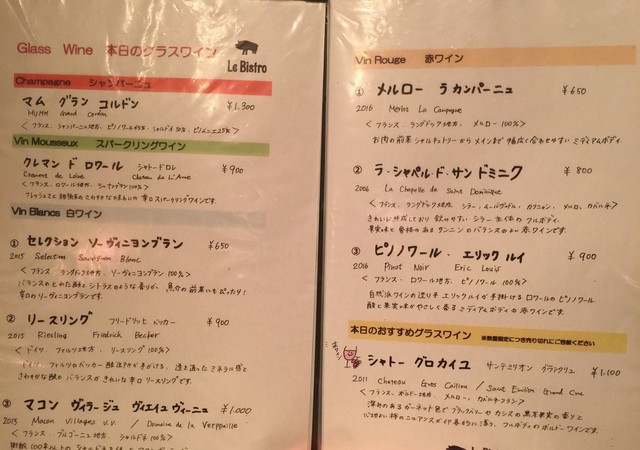 Glass Wine 本日のグラスワイン
Le Bistro
Champagne シャンパーニュ
マム グラン コルドン ¥1.300
MUMM Grand Cordon
<フランス. シャンパーニュ地方. ピノノワール45%. シャルドネ30%. ピノムニエ25%>
Vin Mousseux スパークリングワイン
クレマン ド ロワール シャトー ドロレ ¥900
Cremant de Loire
<フランス. ロワール地方.
辛口スパークリングワインです.
Vin Blancs 白ワイン
① セレクション ソーヴィニヨンブラン ¥650
2015 Selection Sauvignon Blanc
<フランス ラングドック地方. ソーヴィニヨンブラン100%>
バランスのとれた酸とシトラスのような香りが、魚介の前菜にもぴったり!
辛口のソーヴィニヨンブランです.
② リースリング フリードリッヒ ベッカー ¥900
2015 Riesling Friedrich Becker
<ドイツ. ファルツ地方. リースリング100%>
ドイツ. ファルツのベッカー醸造所が手がける、透き通ったミネラル感と
さわやかな酸のバランスがきれいな辛口リースリングです.
③ マコン ヴィラージュ ヴィエイユ ヴィーニュ ¥1.000
2015 Macon Villages V.V. / Domaine de la Verpaille
<フランス. ブルゴーニュ地方. シャルドネ100%>
Vin Rouge 赤ワイン
① メルロー ラ カンパーニュ ¥650
2016 Merlot La Campagne
<フランス. ラングドック地方. メルロー100%>
お肉の前菜シャルキュトリーからメインまで幅広く合わせやすいミディアムボディ.
② ラ・シャペル・ド・サン ドミニク ¥800
2006 La Chapelle de Saint Dominique
<フランス. ラングドック地方. シラー. カリニャン. メルロ. カベルネ>
きれいに熟成しており 飲みやすい シラー主体の フルボディ.
果実味と 骨格のある タンニンの バランスのよい 赤ワインです.
③ ピノノワール. エリック ルイ ¥900
2016 Pinot Noir Eric Louis
<フランス. ロワール地方. ピノノワール 100%>
自然派ワインの造り手 エリックルイが手掛けるロワールのピノノワール.
酸と果実味がやさしく香るミディアムボディの赤ワインです.
本日のおすすめグラスワイン ※数量限定につき売り切れにご容赦ください
シャトー グロカイユ サンテミリオン グランクリュ ¥1.100
2011 Chateau Gros Caillou / Saint Emilion Grand Cru
<フランス. ボルドー地方. メルロー. カベルネフラン>
深みのあるガーネット色で ブラックベリーや カシスの黒系果実の香りと
フルボディのボルドーワインです.
Le Bistro